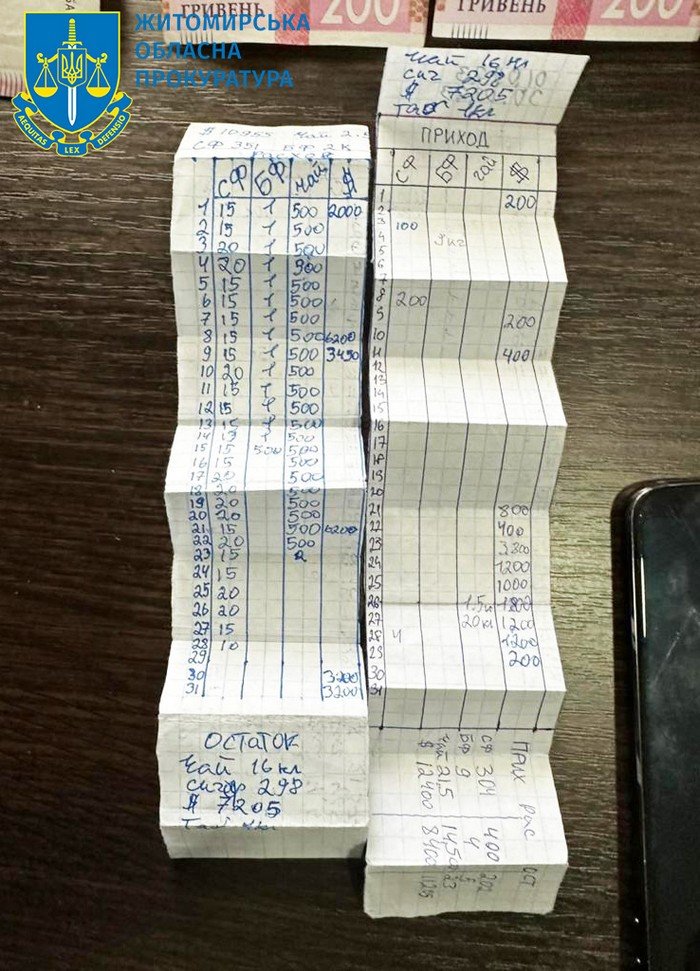 ЖИТОМИРСЬКА
ОБЛАСНА
ПРОКУРАТУРА
AEQUITAS LEX DEFENSIO
ГРИВЕНЬ 200
ГРИВЕНЬ 200
$ 10955 Чай
СФ 351 БФ 2 К
СФ БФ чай $
1 15 1 500 2000
2 15 1 500
3 20 1 500
4 20 1 900
5 15 1 500
6 15 1 500
7 15 1 500
8 15 1 500 6200
9 15 1 500 3450
10 20 1 500
11 15 1 500
12 15 1 500
13 15 1 500
14 15 1 500
15 15 500 500
16 15 500
17 20 500
18 20 500
19 20 500
20 20 500
21 15 500 6200
22 20 500
23 15 2
24 15
25 20
26 20
27 15
28 10
29
30 3200
31 3200
ОСТАТОК
Чай 16 кл
сигар 298
$ 7205
Чай 16 кл
сиг 298
$ 7205
Таб 1кл
ПРИХОД
СФ БФ чай $
1 200
2
3 100
4 9 кг
5
6
7
8 200
9 200
10
11 400
12
13
14
15
16
17
18
19
20
21 800
22 400
23 3300
24 1200
25 1000
26 1.5 1800
27 20 кл 1200
28 4 1200
29 200
30
31
ПРИХ рас ОСТ
СФ 304 400 202
БФ 9 4 5
чай 21.5 14,50 23
$ 12400 8400 1125